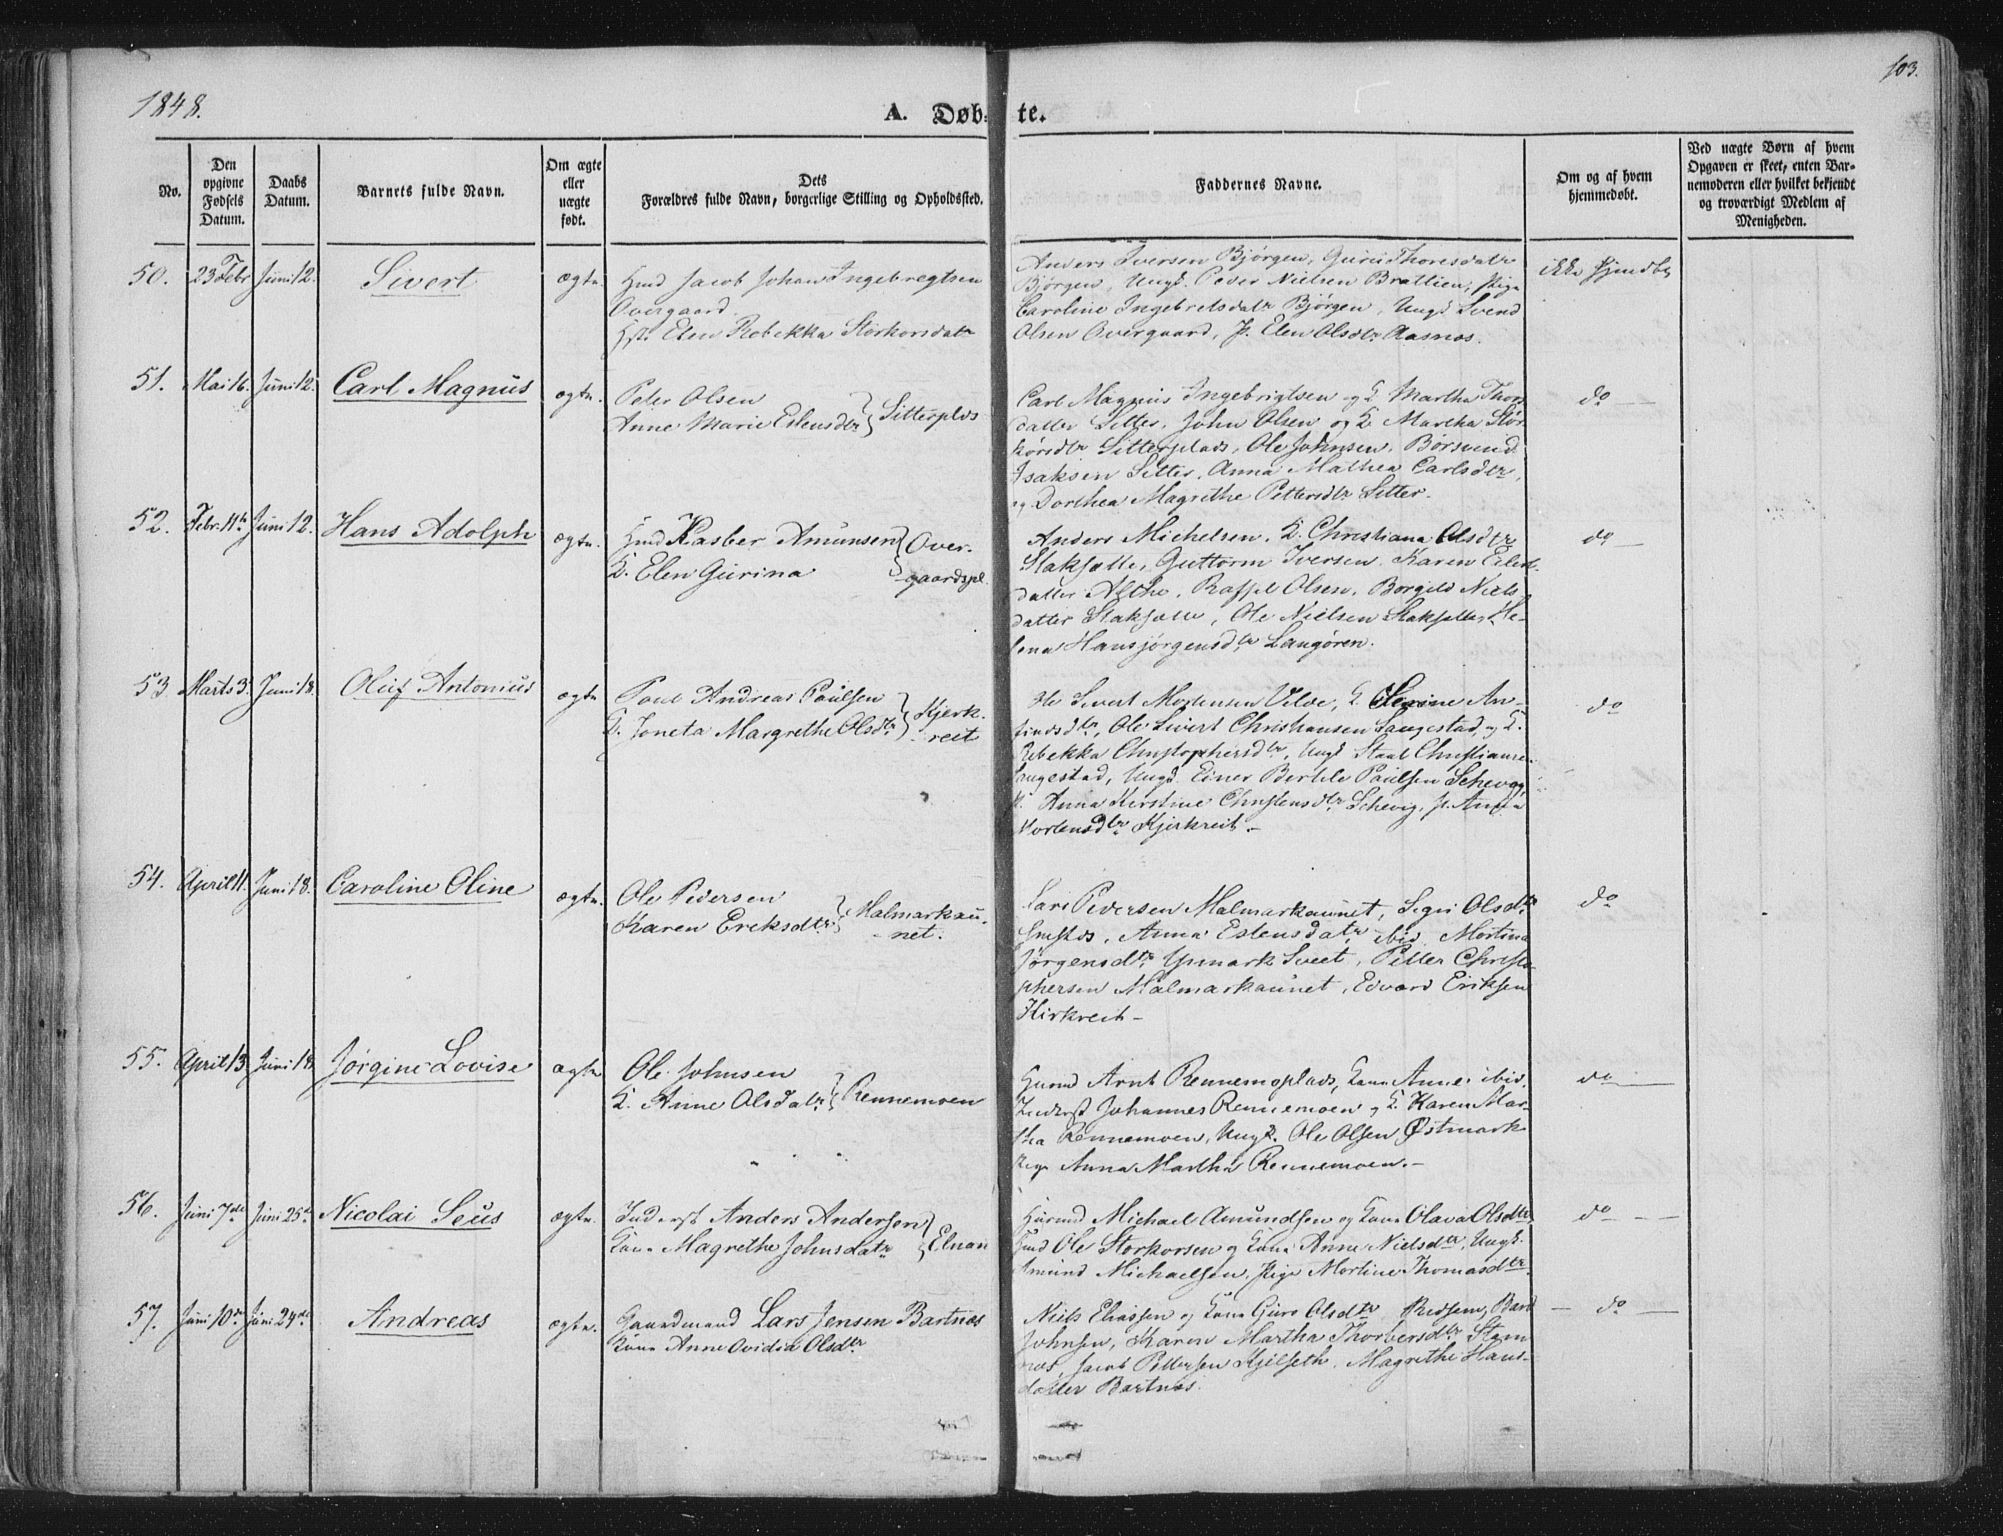 1848.
103.
A. Døb-te.
No.
Den opgivne Fødsels Datum.
Daabs Datum.
Barnets fulde Navn.
Om ægte eller uægte født.
Dets Forældres fulde Navn, borgerlige Stilling og Opholdssted.
Faddernes Navne.
Om og af hvem hjemmedøbt.
Ved uægte Børn af hvem Opgaven er skeet, enten Barnemoderen eller hvilket bekjendt og troværdigt Medlem af Menigheden.
50. 23 Febr Juni 12. Sivert ægte.
Hmd Jacob Johan Ingebregtsen
Overgaard.
Elen Rebekka Storkorsdatr
Anders Iversen Bjørgen, Guru Thoresdatr
Bjørgen, Ungk. Peder Nielsen Bratlien, Pige
Caroline Ingebretsdatr Bjørgen, Ungk Svend
Olsen Overgaard, P. Elen Olsdtr Aasnæs.
ikke hjmdbt
51. Mai 16. Juni 12. Carl Magnus ægte.
Peter Olsen
Anne Marie Estensdtr
Sitterplds
Carl Magnus Ingebrigtsen og K Martha Thors
datter Sitter, John Olsen og K. Martha Stor
korsdtr Sitterplads, Ole Johnsen, Børsund
Isaksen Sitter, Anna Mathea Carlsdtr,
og Dorthea Magrethe Pettersdtr Sitter.
do
52. Febr. 11te Juni 12. Hans Adolph ægte.
Hmd Kasber Amunsen
K. Elen Gurina
Over-
gaardspl.
Anders Michelsen, K. Christiana Olsdtr
Slaksætte, Guttorm Iversen, Karen Eilert
datter Althe, Raffel Olsen, Borgild Niels
datter Slaksætte, Ole Nielsen Slaksætte, He-
lena Hansjørgensdtr Langøren.
do
53 Marts 3. Juni 18. Oluf Antonius ægte
Poul Andreas Paulsen
K. Joneta Margrethe Olsdtr
Kjerk-
reit
Sivert Mortensen Velde, K Serine An-
findsdtr, Ole Sivert Christiansen Langestad, og K.
Rebekka Christophersdtr, Ungk
Langestad, Ungk. Einer Bertele Paulsen
Anna Kirstine Christensdtr Schevig, p. Anna
Mortensdtr Kjerkreit.
do
54. April 11. Juni 18. Caroline Oline ægte.
Ole Pedersen
Karen Eriksdtr
Malmarkau-
net.
Lars Pedersen Malmarkaunet, Sigri Olsdtr
Anna Estensdatr ibid. Mortina
Jørgensdtr Sveet, Petter Christo
phersen Malmarkaunet, Edvard Eriksen
Kirkreit
do
55. April 13 Juni 18. Jørgine Lovise ægte
Ole Johnsen
K. Anne Olsdatr
Rennemoen
Husmd Arnt Rennemoplads, Kone Anne ibid.
Inderst Johannes Rennemoen og K. Karen Mar-
tha Rennemoen, Ungk. Ole Olsen Østmark
Pige Anna Martha Rennemoen.
do
56. Juni 7de Juni 25de Nicolai Seus ægte.
Inderst Anders Andersen
Kone Magrethe Johnsdatr
Elnan
Husmd Michael Amundsen og Kone Olava Olsdtr
Hmd Ole Storkorsen og Kone Anne Nielsdtr, Ungk.
Amund Michaelsen, Pige Martine Thomasdtr
do
57. Juni 10de Juni 24de Andreas ægte.
Gaardmand Lars Jensen Bartnæs
Kone Anne Ovidia Olsdtr
Niels Eliassen og Kone Guro Olsdtr
Johnsen, Karen Martha Thorbersdtr Stam
næs, Jacob Pettersen Kjilseth, Magrethe Hans-
datter Bartnæs.
do